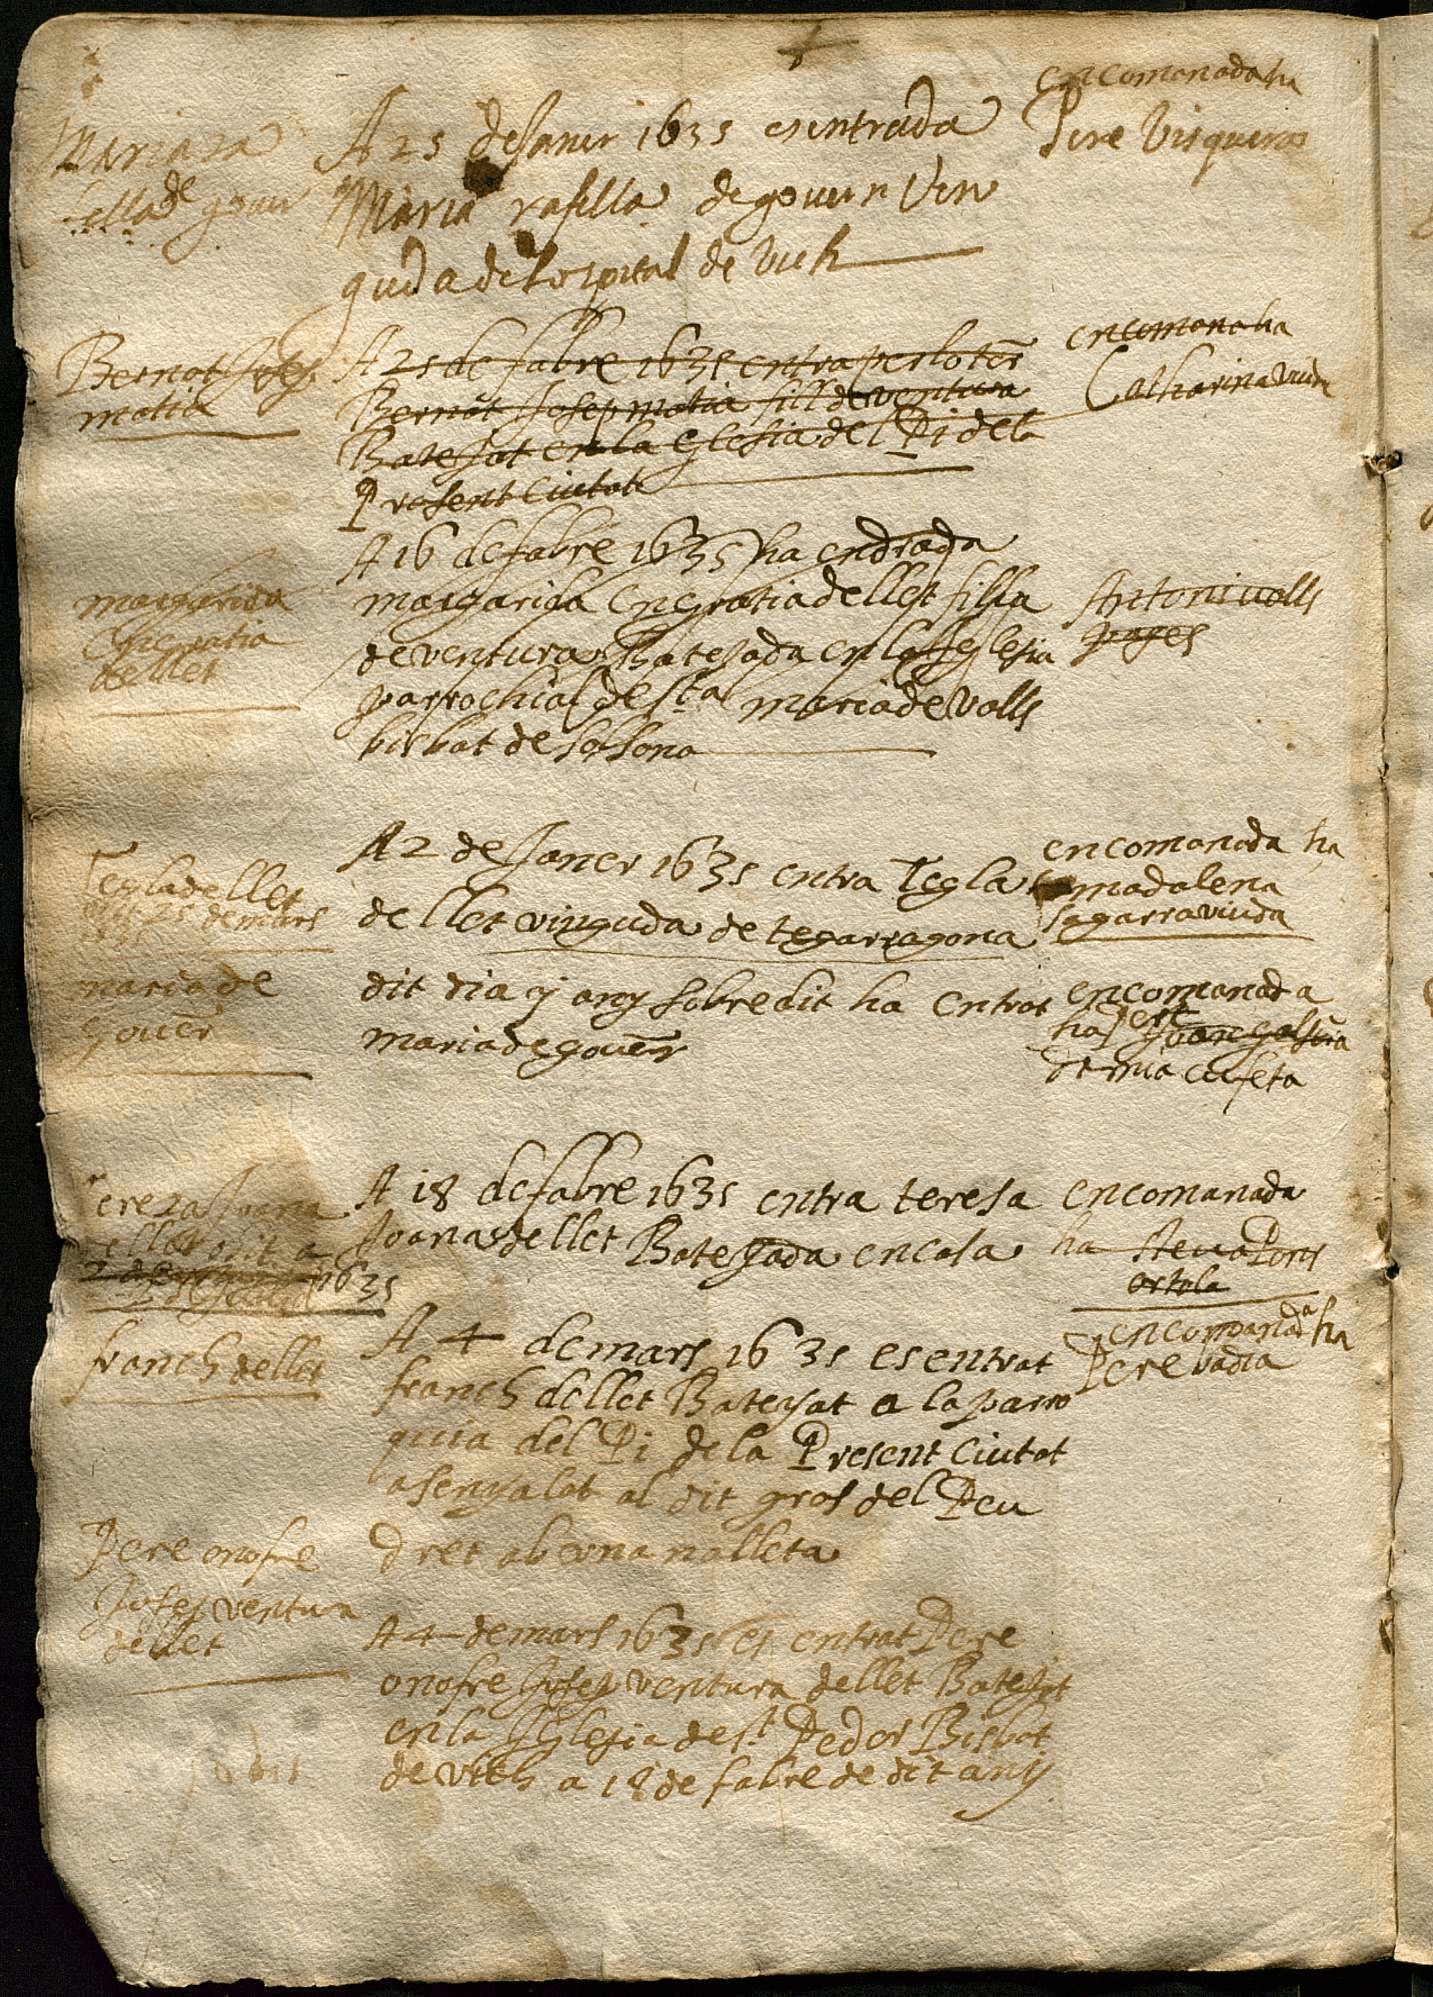 encomanada ha
Pere Visqueros
Maria ra
fella de govern
A 25 de Janer 1635 es intrada
Maria rafella de govern Vin
guda del ospital de Vich
Bernat Josep
matia
A 25 de fabre 1635 entra per lo torn
Bernat Josep matia fill de ventura
Batejat en la eglesia del Pi de la
Present Ciutat
encomana ha
Catharina viuda
margarida
Engratia
de llet
A 16 de fabre 1635 ha endrada
margarida Engratia de llet filla
de ventura Batejada en la Iglesia
parrochial de sta maria de Valls
bisbat de solsona
Antoni valls
pages
Tegla de llet
obit 25 de mars
1635
A 2 de Janer 1635 entra Tegla
de llet vinguda de tegarragona
encomanada ha
madalena
sagarra viuda
maria de
govern
dit dia y any sobredit ha entrat
maria de govern
encomanada
ha pere
Tereza Joana
de llet obit a
1635
A 18 de fabre 1635 entra teresa
Joana de llet Batejada en casa
encomanada
ha steva Pons
ortola
franch de llet
A 4 de mars 1635 es entrat
franch de llet Bateyat a la parro
quia del Pi de la Present Ciutat
asenyalat al dit gros del Peu
dret ab una nalleta
encomanada ha
Pere badia
Pere onofre
Josep ventura
de llet
A 4 de mars 1635 es entrat Pere
onofre Josep ventura de llet Batejat
en la Iglesia de st Pedor Bisbat
de Vich a 18 de fabre de dit any
obit